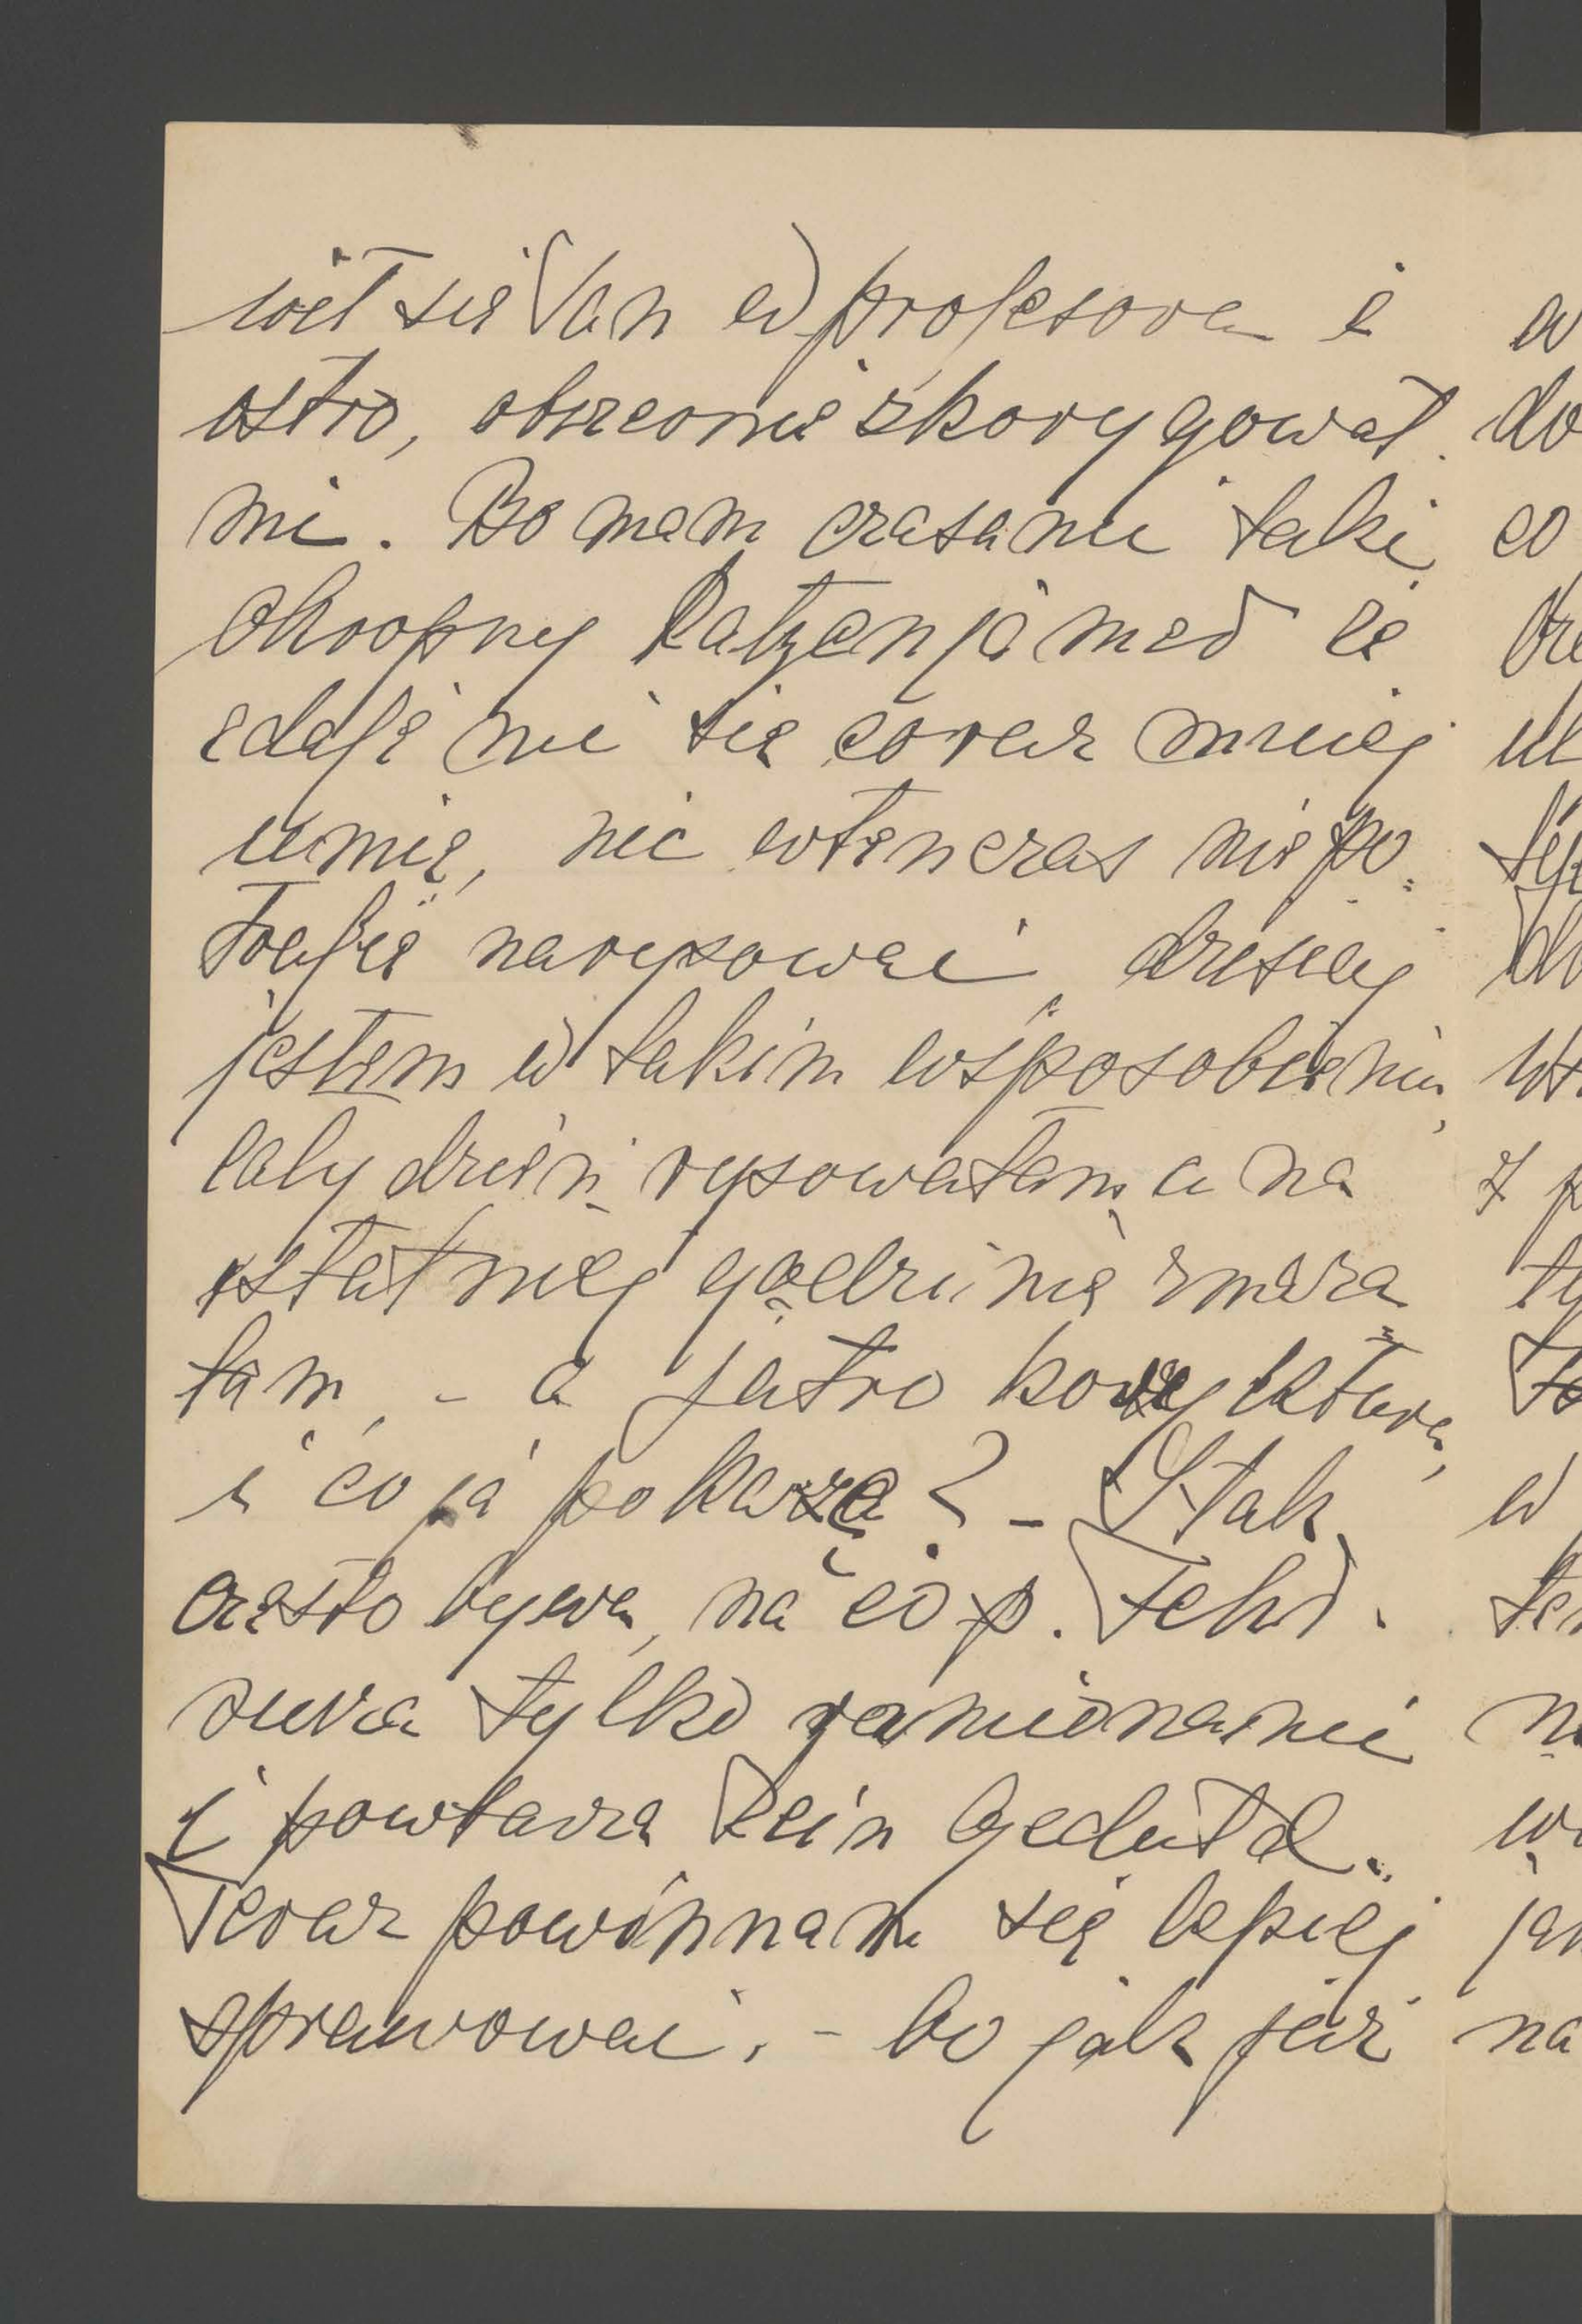 wił się Pan w profesora i
ostro, obszernie skorygował
mi. Bo mam czasami taki
okropny Katzenjamed że
zdaje mi się coraz mniej
umię, nic wtenczas nie po=
trafię narysować, dzisiaj
jestem w takim usposobieniu,
cały dzień rysowałam, a na
ostatniej godzinie zmaza=
łam, - a jutro korrektura,
i co ja pokarzę? - I tak
często bywa, na co p. Fehr.
rusza tylko ramionami
i powtarza Kein Geduld.
Teraz powinnam się lepiej
sprawować, - bo jak już
w
do
co
w
na